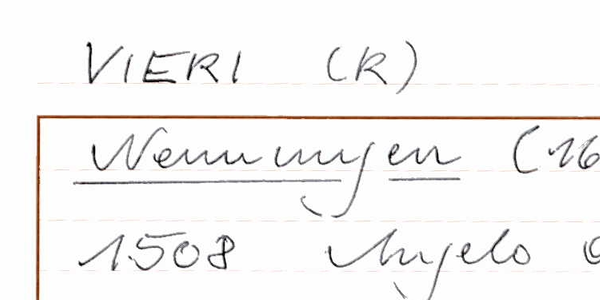 VIERI (R)
Nennungen (16
1508 Angelo